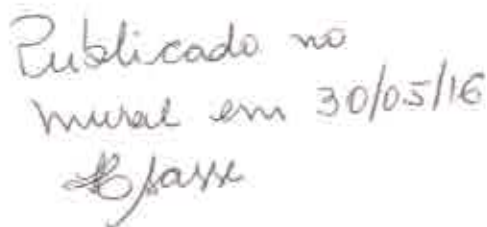 Publicado no
mural em 30/05/16